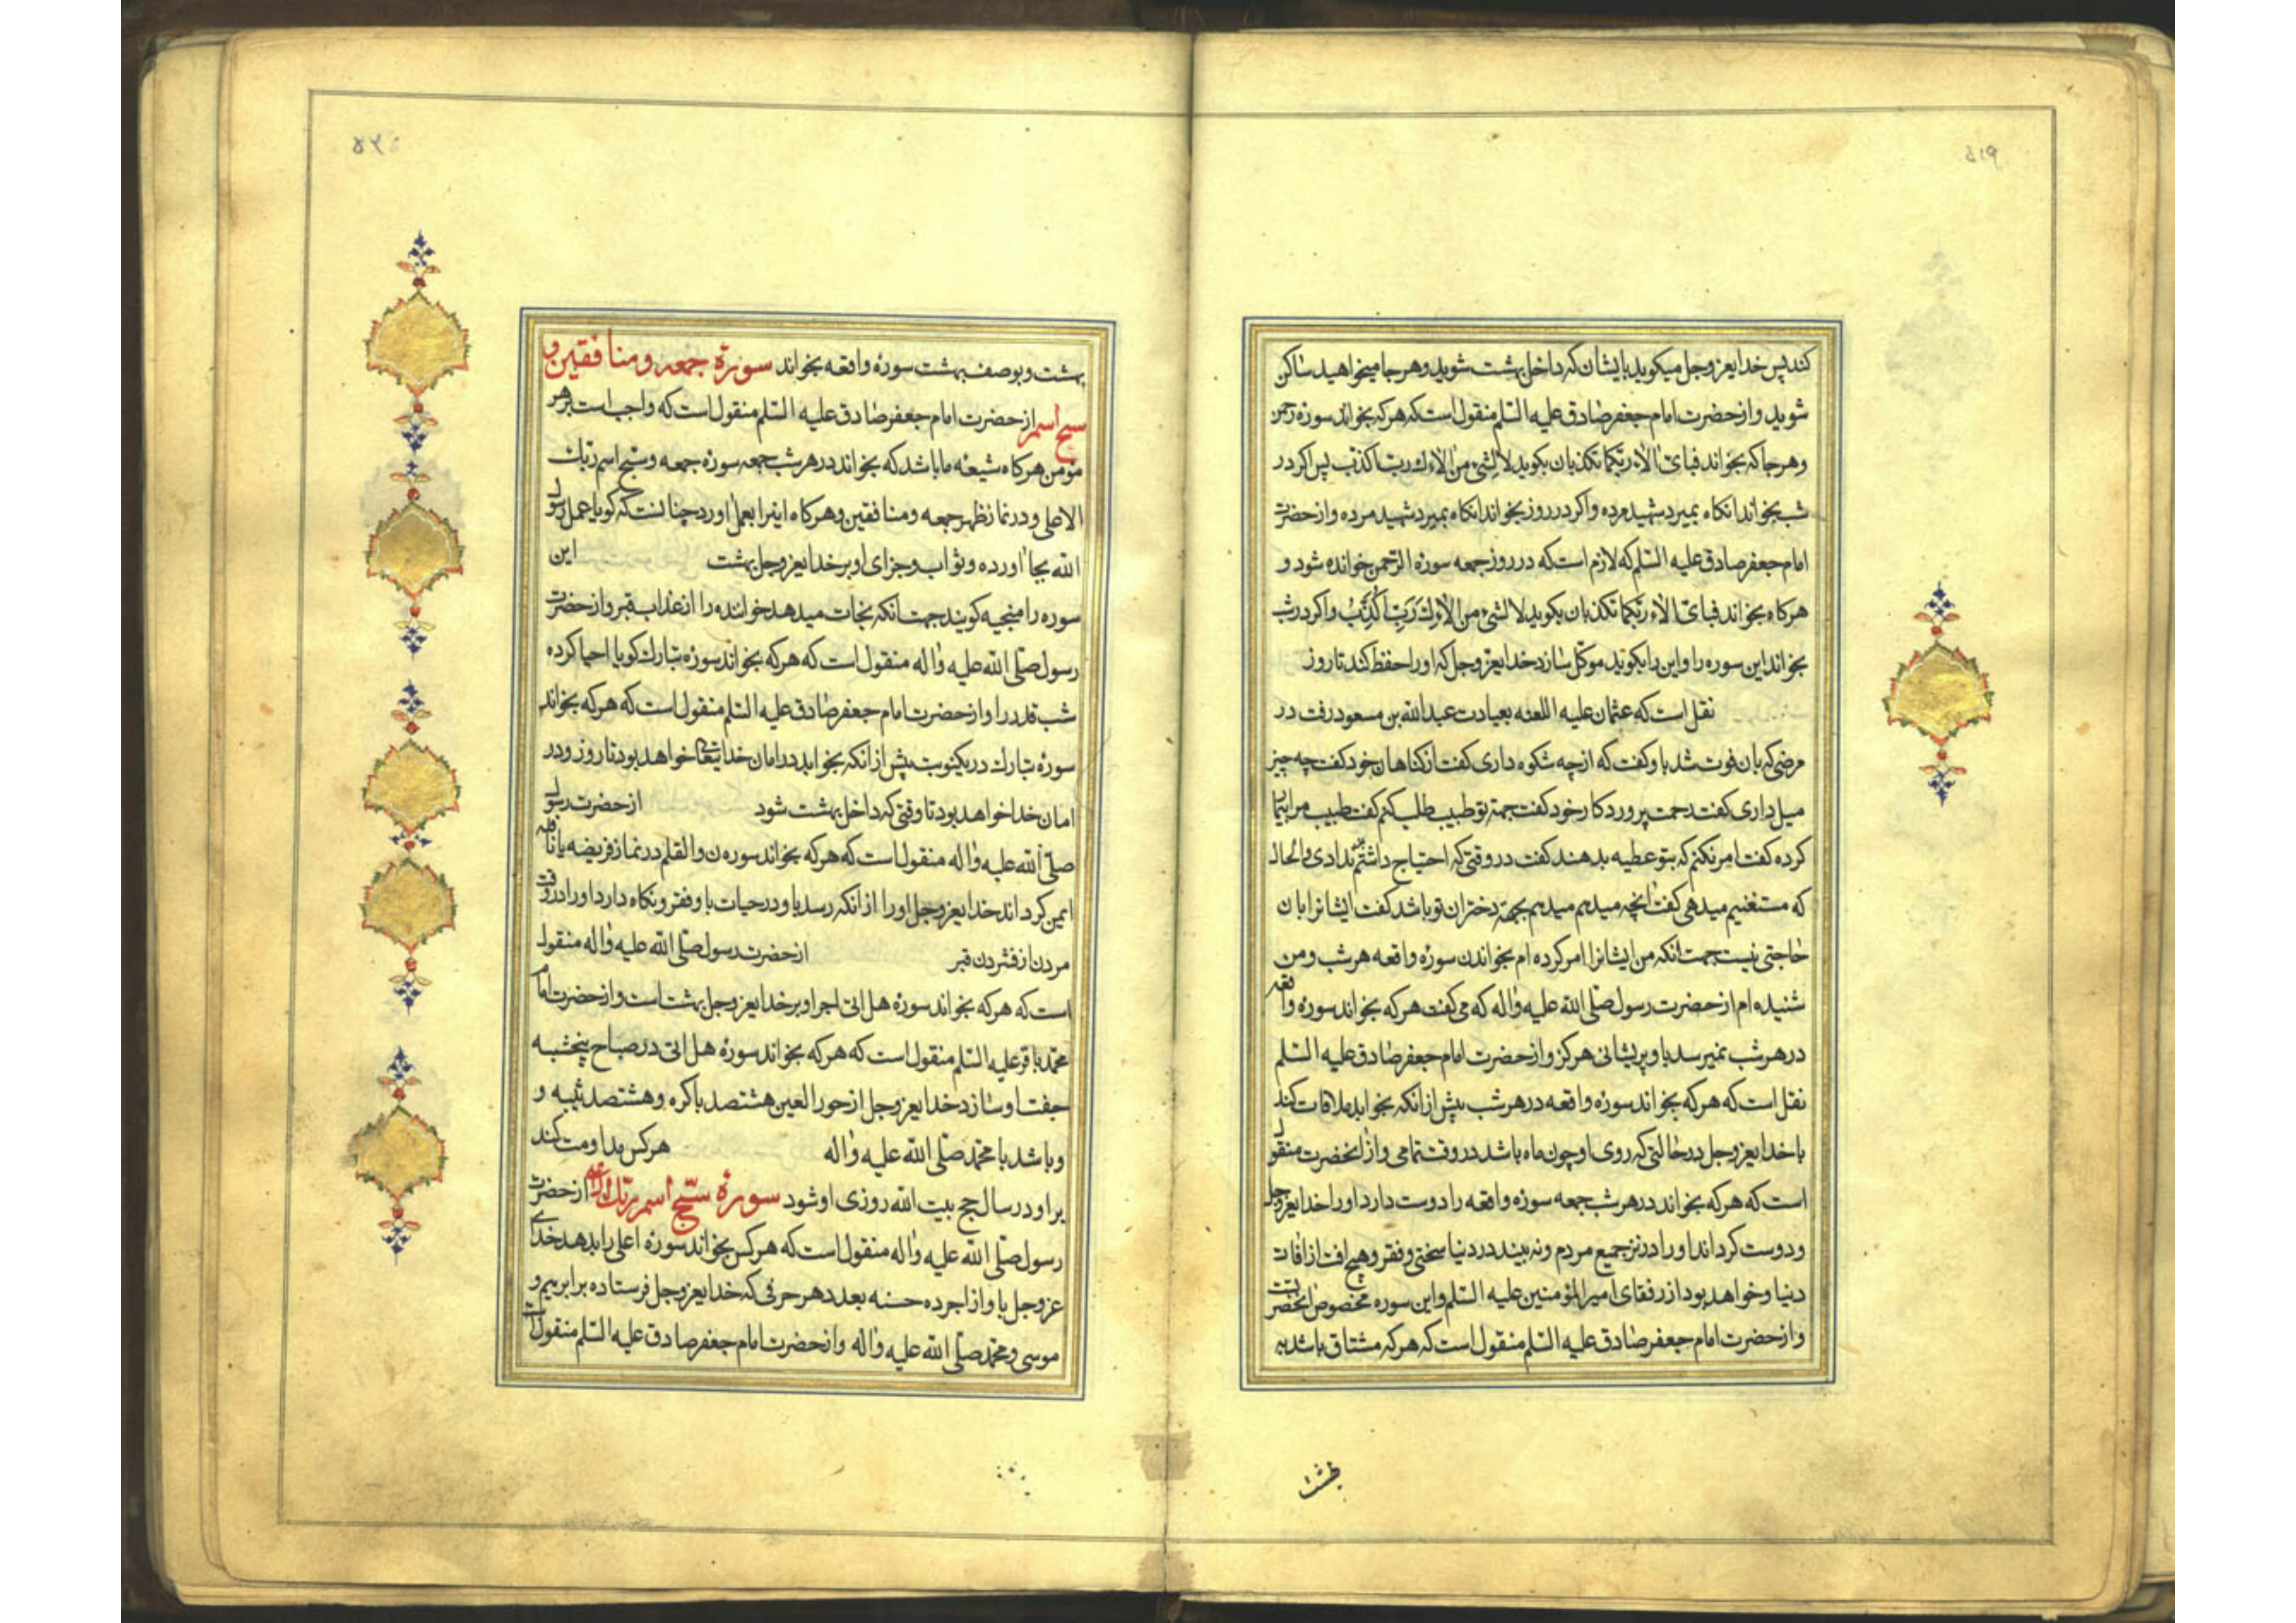 ۵۱۹
کند پس خدایعزوجل میکوید بایشان که داخل بهشت شوید و هر جا میخواهید ساکن
شوید و از حضرت امام جعفر صادق علیه السّلم منقول است که هر که بخواند سوره رحمن
و هر جا که بخواند فبای الاء ربکما تکذبان بکوید لا بشئ من الاءك رب اکذب پس اکر در
شب بخواند انکاه بمیرد شهید مرده و اکر در روز بخواند انکاه بمیرد شهید مرده و از حضرت
امام جعفر صادق علیه السّلم که لازم است که در روز جمعه سورهٔ الرّحمن خوانده شود و
هرکاه بخواند فبای الاء ربکما تکذبان بکوید لا بشئ من الاءك رب اکذب و اکر در شب
بخواند این سوره را و این را بکوید موکل سازد خدایعزوجل که او را حفظ کند تا روز
نقل است که عثمان علیه اللعنه بعیادت عبدالله بن مسعود رفت در
مرضی که بان فوت شد باو کفت که از چه شکوه داری کفت از کناهان خود کفت چه چیز
میل داری کفت رحمت پروردکار خود کفت جهة تو طبیب طلب کنم کفت طبیب مرا بیما
کرده کفت امر نکنم که بتو عطیه بدهند کفت در وقتی که احتیاج داشتم ندادی و الحال
که مستغنیم میدهی کفت انچه میدهم میدهم بجهة دختران تو باشد کفت ایشانرا بان
حاجتی نیست جهت انکه من ایشانرا امر کرده ام بخواندن سورهٔ واقعه هر شب و من
شنیده ام از حضرت رسول صلی الله علیه واله که می کفت هر که بخواند سورهٔ واقعه
در هر شب نمیرسد باو پریشانی هرکز و از حضرت امام جعفر صادق علیه السّلم
نقل است که هر که بخواند سورهٔ واقعه در هر شب پیش از انکه بخوابد ملاقات کند
با خدایعزوجل در حالتی که روی او چون ماه باشد در وقت تمامی و از انحضرت منقول
است که هر که بخواند در هر شب جمعه سوره واقعه را دوست دارد او را خدایعزوجل
و دوست کرداند او را در نزد جمیع مردم و نه بیند در دنیا سختی و فقر و هیچ افت از افات
دنیا و خواهد بود از رفقای امیر المؤمنین علیه السّلم و این سوره مخصوص انحضرتست
و از حضرت امام جعفر صادق علیه السّلم منقول است که هر که مشتاق باشد به
بهشت
بهشت و بوصف بهشت سورهٔ واقعه بخواند سورهٔ جمعه و منافقین و
سبح اسم از حضرت امام جعفر صادق علیه السّلم منقول است که واجب است بر هر
مؤمن هرکاه شیعهٔ ما باشد که بخواند در هر شب جمعه سورهٔ جمعه و سبح اسم ربك
الاعلی و در نماز ظهر جمعه و منافقین و هرکاه اینرا بعمل اورد چنانست که کویا عمل رسول
الله بجا اورده و ثواب و جزای او بر خدایعزوجل بهشت این
سوره را منجیه کویند جهت انکه نجات میدهد خواننده را از عذاب قبر و از حضرت
رسول صلی الله علیه واله منقول است که هر که بخواند سورهٔ تبارك کویا احیا کرده
شب قدر را و از حضرت امام جعفر صادق علیه السّلم منقول است که هر که بخواند
سورهٔ تبارك در یکنوبت پیش از انکه بخوابد در امان خدایتعالی خواهد بود تا روز و در
امان خدا خواهد بود تا وقتی که داخل بهشت شود از حضرت رسول
صلی الله علیه واله منقول است که هر که بخواند سوره ن والقلم در نماز فریضه یا نافله
ایمن کرداند خدایعزوجل او را از انکه رسد باو در حیات باو فقر و نکاه دارد او را در وقت
مردن از فشردن قبر از حضرت رسول صلی الله علیه واله منقول
است که هر که بخواند سورهٔ هل اتی اجر او بر خدایعزوجل بهشت است و از حضرت امام
محمد باقر علیه السّلم منقول است که هر که بخواند سورهٔ هل اتی در صباح پنجشبه
جفت او سازد خدایعزوجل از حور العین هشتصد باکره و هشتصد ثیبه و
و باشد با محمد صلی الله علیه واله هر کس مداومت کند
براو در سال حج بیت الله روزی او شود سورهٔ سبح اسم ربك الاعلی از حضرت
رسول صلی الله علیه واله منقول است که هر کس بخواند سورهٔ اعلی را بدهد خدای
عزوجل باو از اجر ده حسنه بعدد هر حرفی که خدایعزوجل فرستاده بر ابرهیم و
موسی و محمد صلی الله علیه واله و از حضرت امام جعفر صادق علیه السّلم منقول است